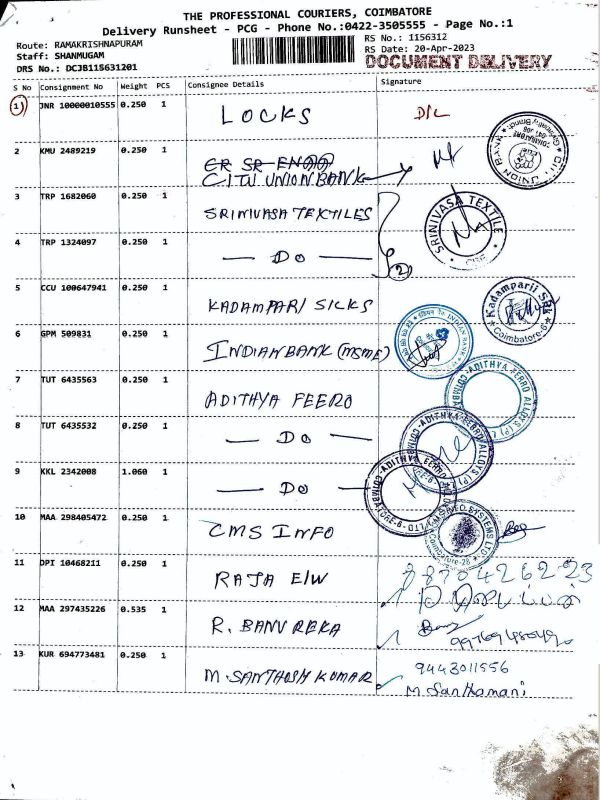 THE PROFESSIONAL COURIERS, COIMBATORE
Delivery Runsheet - PCG - Phone No.:0422-3505555 - Page No.:1
Route: RAMAKRISHNAPURAM
Staff: SHANMUGAM
DRS No.: DCJB115631201
RS No.: 1156312
RS Date: 20-Apr-2023
DOCUMENT DELIVERY
S No Consignment No Weight PCS Consignee Details Signature
1 JNR 10000010555 0.250 1 LOCKS D/L
2 KMU 2489219 0.250 1 CITY UNION BANK
3 TRP 1682060 0.250 1 SRINIVASA TEXTILES SRINIVASA TEXTILE
4 TRP 1324097 0.250 1 — DO — 2
5 CCU 100647941 0.250 1 KADAMPARI SILKS Kadamparii Silk Coimbatore-6
6 GPM 509831 0.250 1 INDIAN BANK (MSME) INDIAN BANK
7 TUT 6435563 0.250 1 ADITHYA FEERO ADITHYA FERRO ALLOYS (P) L
8 TUT 6435532 0.250 1 — DO — ADITHYA FERRO ALLOYS (P)
9 KKL 2342008 1.060 1 — DO — ADITHYA FERRO
10 MAA 298405472 0.250 1 CMS INFO CMS INFO SYSTEMS LTD Coimbatore-28
11 DPI 10468211 0.250 1 RAJA E/W
12 MAA 297435226 0.535 1 R. BANU REKA
13 KUR 694773481 0.250 1 M. SANTHOSH KUMAR 9443011556
M. Santhamani